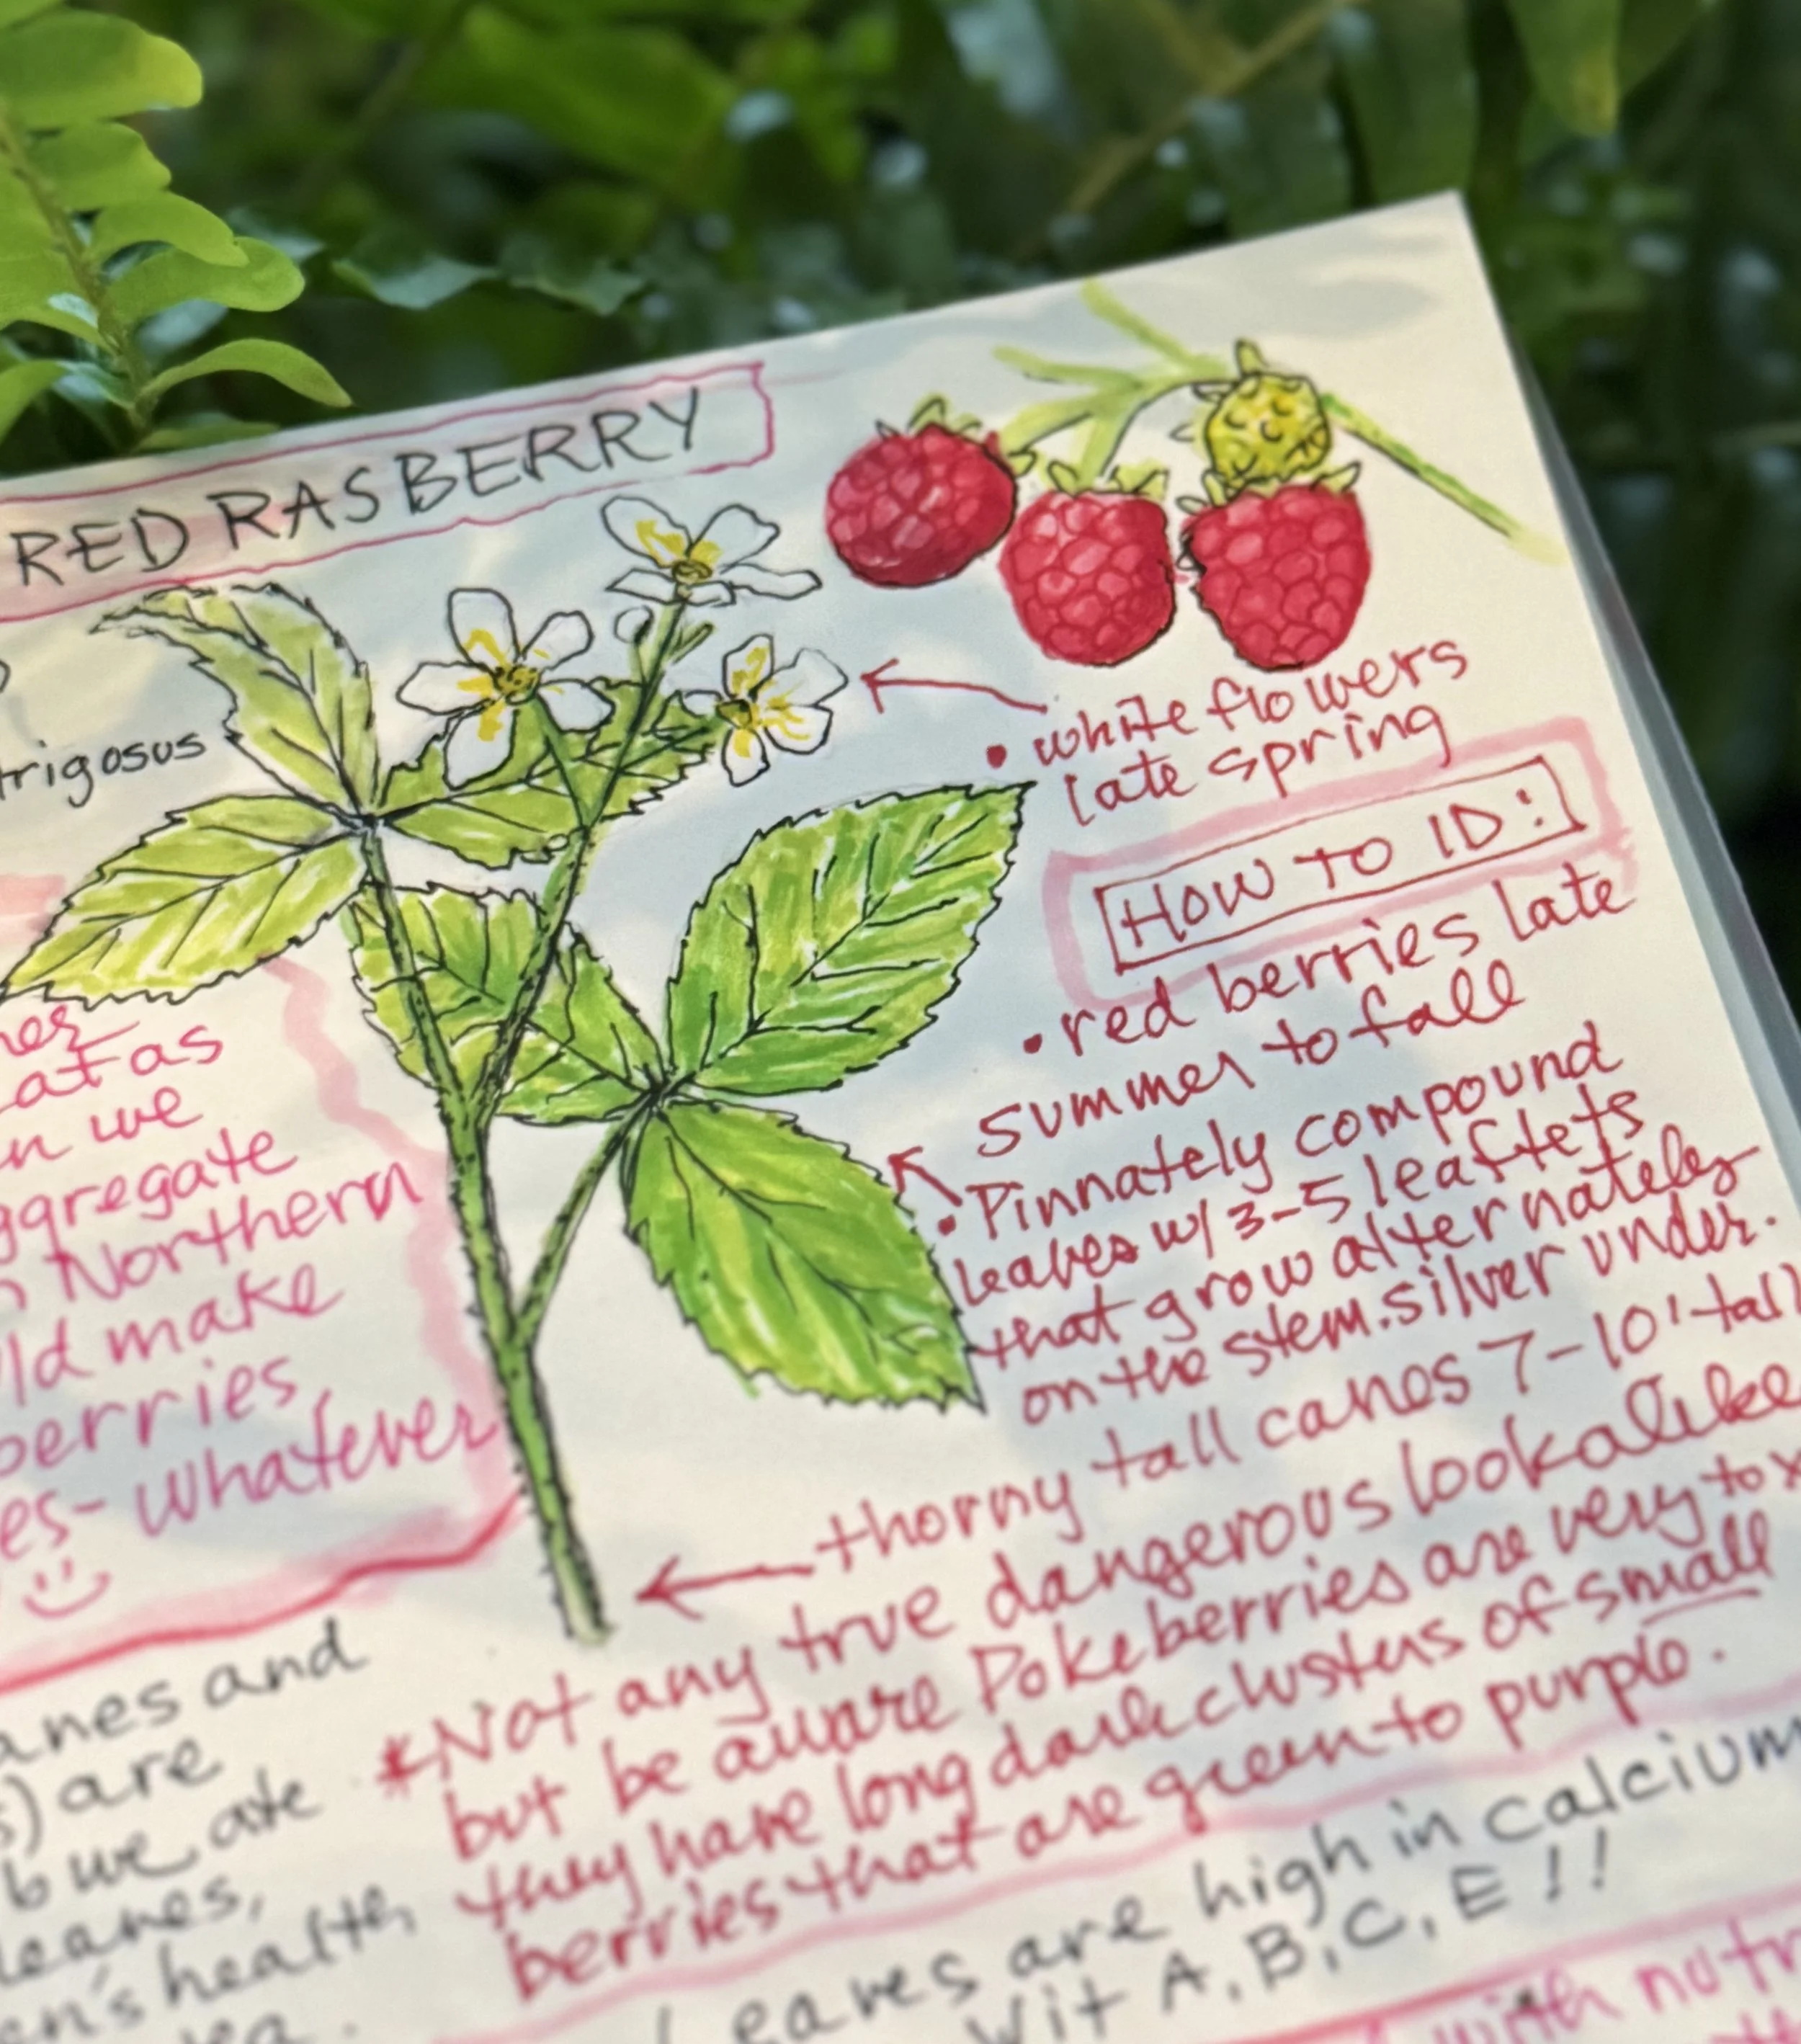 RED RASBERRY
trigosus
• white flowers
late spring
HOW TO ID:
• red berries late
summer to fall
• Pinnately compound
leaves w/ 3-5 leaflets
that grow alternately
on the stem. silver under.
thorny tall canes 7-10' tall
*Not any true dangerous lookalike
but be aware Pokeberries are very tox
they have long dark clusters of small
berries that are green to purple.
at as
n we
ggregate
Northern
ld make
berries,
es- whatever
anes and
s) are
b we ate
leaves,
en's health
Leaves are high in calcium
Vit A, B, C, E!!
with nutr